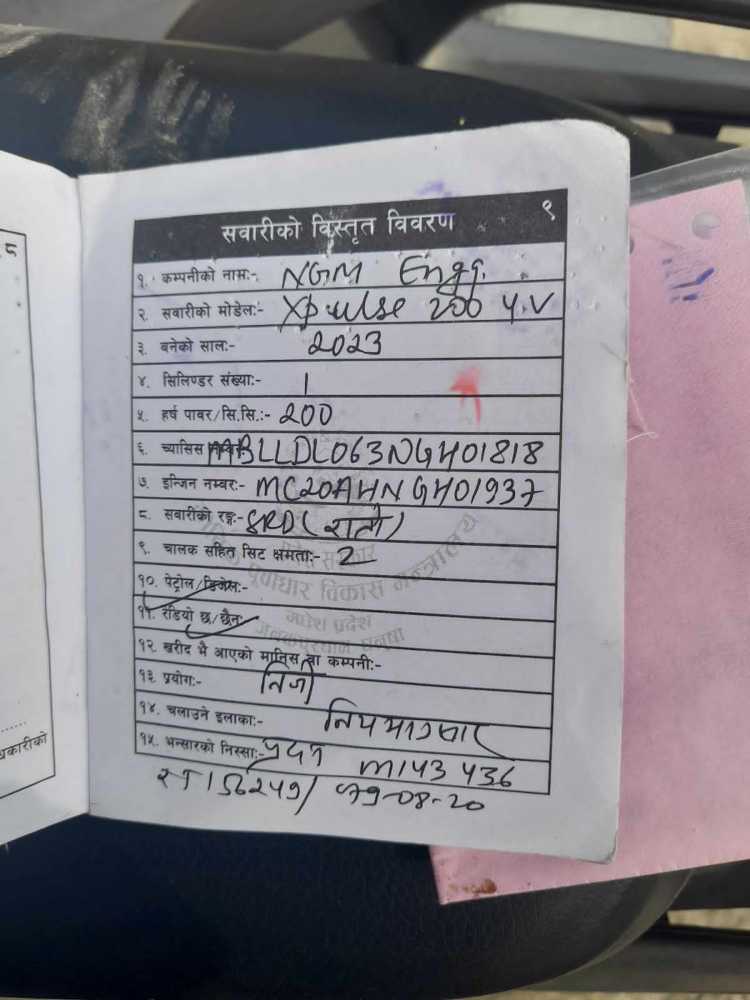 ८
९
सवारीको विस्तृत विवरण
१. कम्पनीको नाम:- NGM Engg.
२. सवारीको मोडेल:- Xpulse 200 4.V
३. बनेको साल:- 2023
४. सिलिण्डर संख्या:- 1
५. हर्ष पावर/सि.सि.:- 200
६. च्यासिस MBLLDL063NGH01818
७. इन्जिन नम्बर:- MC20AHNGH01937
८. सवारीको रङ्ग:- SRD (रातो)
९. चालक सहित सिट क्षमता:- 2
१०. पेट्रोल/डिजेल:-
पूर्वाधार विकास मन्त्रालय
११. रेडियो छ/छैन
मधेश प्रदेश
जनकपुरधाम धनुषा
१२. खरीद भै आएको मानिस वा कम्पनी:-
१३. प्रयोग:- निजी
१४. चलाउने इलाका:- नियमानुसार
१५. भन्सारको निस्सा:- M143436
156249/ 79-08-20